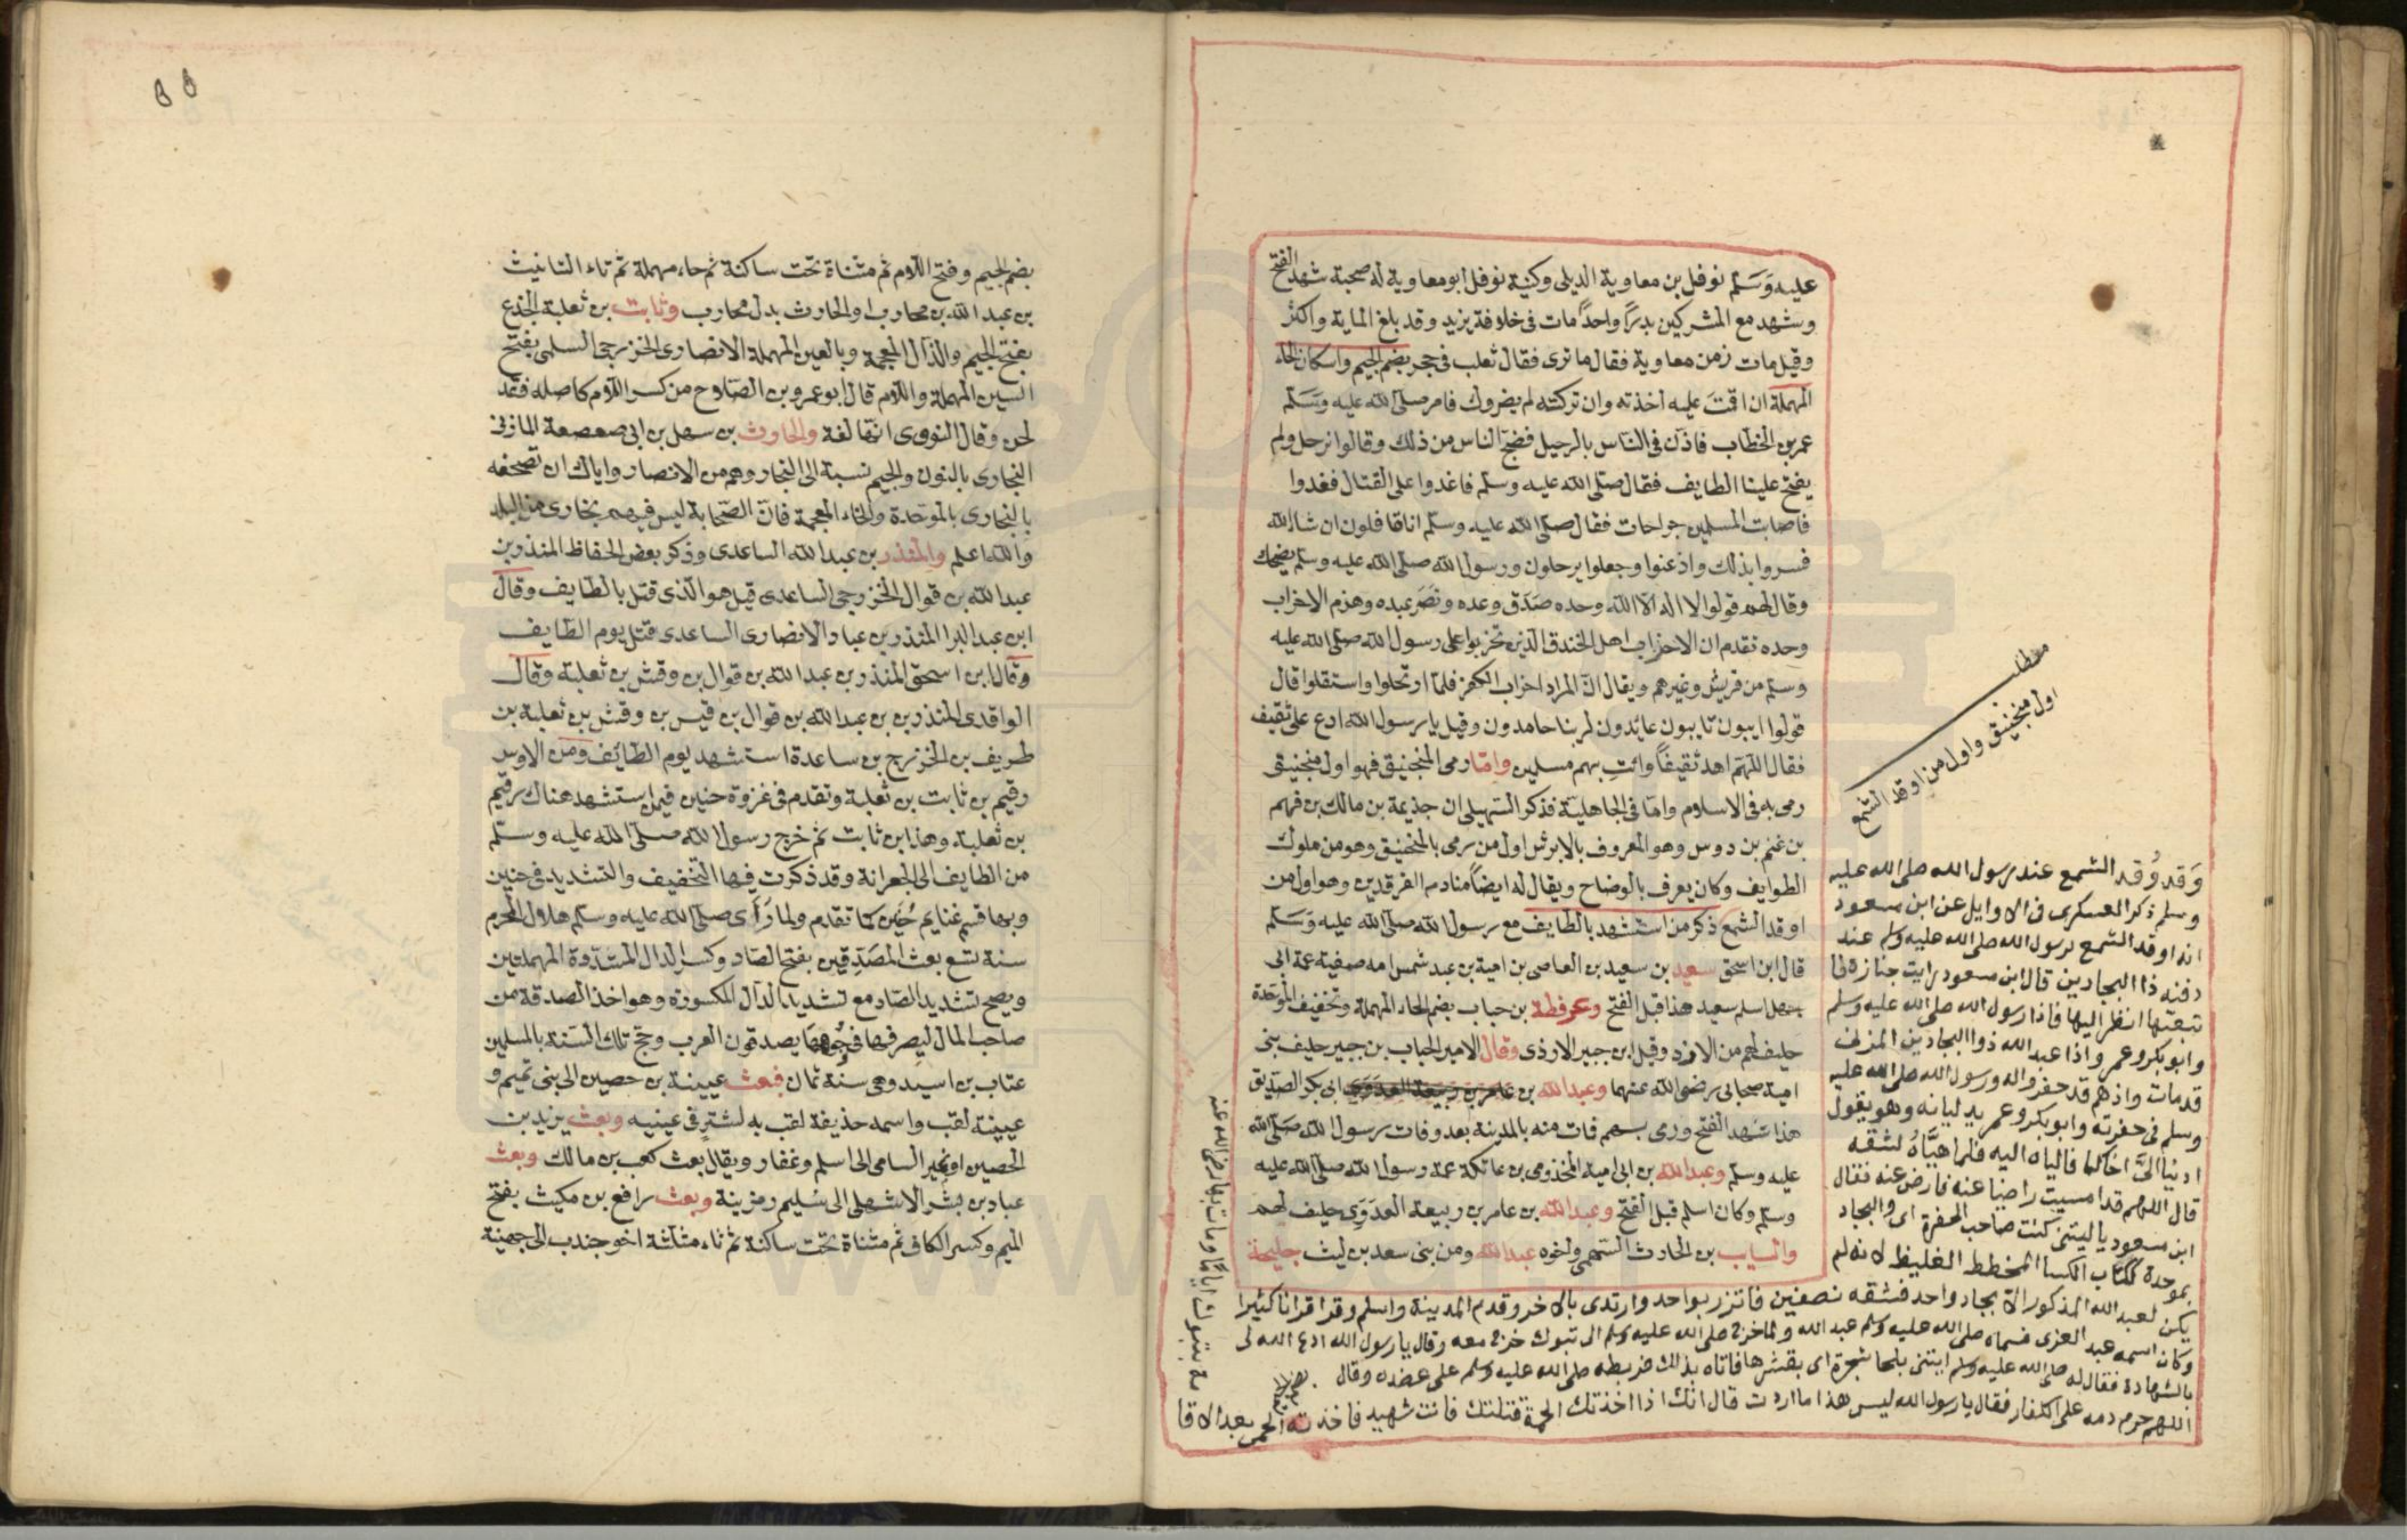 عليه وَسَلّم نوفل بن معاوية الديلى وكنية نوفل ابو معاوية له صحبة شهد الفتح
وشهد مع المشركين بدرًا واحدًا مات فى خلافة يزيد وقد بلغ الماية واكثر
وقيل مات زمن معاوية فقال ما ترى فقال ثعلب فى جحر بضم الجيم واسكان الحاء
المهملة ان اقمتَ عليه اخذته وان تركته لم يضروك فامر صلى الله عليه وسَلّم
عمر بن الخطاب فاذن فى الناس بالرحيل فضج الناس من ذلك وقالوا نرحل ولم
يفتح علينا الطايف فقال صلى الله عليه وسلم فاغدوا على القتال فغدوا
فاصابت المسلمين جراحات فقال صلى الله عليه وسلم انا قافلون ان شاالله
فسروا بذلك واذعنوا وجعلوا يرحلون ورسول الله صلى الله عليه وسلم يضحك
وقال لهم قولوا لا اله الا الله وحده صَدَق وعده ونصَر عبده وهزم الاحزاب
وحده تقدم ان الاحزاب اهل الخندق الذين تحزبوا على رسول الله صلى الله عليه
وسلم من قريش وغيرهم ويقال انّ المراد احزاب الكفر فلما ارتحلوا واستقلوا قال
قولوا ايبون تايبون عابدون لربنا حامدون وقيل يا رسول الله ادع على ثقيف
فقال اللهم اهد ثقيفًا وائت بهم مسلمين وامّا رمى المنجنيق فهو اول منجنيق
رمى به فى الاسلام واما فى الجاهلية فذكر السهيلى ان جذيمة بن مالك بن فهم
بن غنم بن دوس وهو المعروف بالابرش اول من رمى بالمنجنيق وهو من ملوك
الطوايف وكان يعرف بالوضاح ويقال له ايضًا منادم الفرقدين وهو اول من
اوقد الشمع ذكر من استشهد بالطايف مع رسول الله صلى الله عليه وَسَلّم
قال ابن اسحق سعيد بن سعيد بن العاصى بن امية بن عبد شمس امه صفية عمة ابى
جهل اسلم سعيد هذا قبل الفتح وعرفطة بن حباب بضم الحاء المهملة وتخفيف الموحدة
حليف لهم من الازد وقيل ابن جبير الازدى وقال الامير الحباب بن جبير حليف بنى
امية صحابى رضى الله عنهما وعبدالله بن عامر بن ربيعة العدوى ابى بكر الصديق
هذا شهد الفتح ورمى بسهم فمات منه بالمدينة بعد وفات رسول الله صلى الله
عليه وسلم وعبدالله بن ابى امية المخذومى بن عاتكة عمة رسول الله صلى الله عليه
وسلم وكان اسلم قبل الفتح وعبدالله بن عامر بن ربيعة العدَوَى حليف لهم
والسايب بن الحارث السهمى واخوه عبدالله ومن بنى سعد بن ليث جليحة
مطلب
اول منجنيق واول من اوقد الشمع
وَقد وُقد الشمع عند رسول الله صلى الله عليه
وسلم ذكر العسكرى فى الاوايل عن ابن مسعود
انه اوقد الشمع لرسول الله صلى الله عليه وسلم عند
دفنه ذا البجادين قال ابن مسعود رايت جنازة لما
تبعتها انظر اليها فاذا رسول الله صلى الله عليه وسلم
وابو بكر وعمر واذا عبد الله ذوا البجادين المزنى
قد مات واذ هم قد حفروا له ورسول الله صلى الله عليه
وسلم فى حفرته وابو بكر وعمر يدليانه وهو يقول
ادنيا الىّ اخاكما فالياه اليه فلما هيّاهُ لشقه
قال اللهم قد امسيت راضيا عنه فارض عنه فقال
ابن مسعود يا ليتنى كنت صاحب الحفرة اى والبجاد
بموحدة ككتاب الكسا المخطط الغليظ لانه لم
يكن لعبد الله المذكور الا بجاد واحد فشقه نصفين فاتزر بواحد وارتدى بالاخر وقدم المدينة واسلم وقرا قرانا كثيرا
وكان اسمه عبد العزى فسماه صلى الله عليه وسلم عبد الله ولما خرج صلى الله عليه وسلم الى تبوك خرج معه وقال يا رسول الله ادع الله لى
بالشهادة فقال له صلى الله عليه وسلم ايتنى بلحا شجرة اى بقشرها فاتاه بذلك فربطه صلى الله عليه وسلم على عضده وقال
اللهم حرم دمه على الكفار فقال يا رسول الله ليس هذا ما اردت قال انك اذا اخذتك الحمى فتلتك فانت شهيد فاخذته الحمى بعد الاقا
مة بتبوك اياما ومات بها رضى الله عنه
بضم الجيم وفتح اللام ثم مثناة تحت ساكنة ثم حاء مهملة ثم تاء التانيث
بن عبد الله بن محارب او الحارث بدل محارب وثابت بن ثعلبة الجذع
بفتح الجيم والذال المعجمة وبالعين المهملة الانصارى الخزرجى السلمى بفتح
السين المهملة واللام قال ابو عمرو بن الصلاح من كسر اللام كاصله فقد
لحن وقال النووى انها لغة والحارث بن سهل بن ابى صعصعة المازنى
النجارى بالنون والجيم نسبة الى النجار وهم من الانصار واياك ان تصحفه
بالبخارى بالموحدة والخاء المعجمة فان الصحابة ليس فيهم بخارى من البلد
والله اعلم والمنذر بن عبد الله الساعدى وذكر بعض الحفاظ المنذر بن
عبد الله بن قوال الخزرجى الساعدى قيل هو الذى قتل بالطايف وقال
ابن عبد البر المنذر بن عباد الانصارى الساعدى قتل يوم الطايف
وقال ابن اسحق المنذر بن عبد الله بن قوال بن وقش بن ثعلبة وقال
الواقدى المنذر بن بن عبد الله بن قوال بن قيس بن وقش بن ثعلبة بن
طريف بن الخزرج بن ساعدة استشهد يوم الطائف ومن الاوس
رقيم بن ثابت بن ثعلبة وتقدم فى غزوة حنين فيمن استشهد هناك رقيم
بن ثعلبة وهذا ابن ثابت ثم خرج رسول الله صلى الله عليه وسلم
من الطايف الى الجعرانة وقد ذكرت فيها التخفيف والتشديد فى حنين
وبها قسم غنايم حُنَين كما تقدم ولما رَأَى صلى الله عليه وسلم هلال المحرم
سنة تسع بعث المصَدِّقين بفتح الصاد وكسر الدال المشددة المهملتين
ويصح تشديد الصاد مع تشديد الدال المكسورة وهو اخذ الصدقة من
صاحب المال ليصرفها فى وجوهها يصدقون العرب وحج تلك السنة بالمسلمين
عتاب بن اسيد وهى سنة ثمان فبعث عيينة بن حصين الى بنى تميم و
عيينة لقب واسمه حذيفة لقب به لشترٍ فى عينيه وبعث يزيد بن
الحصين السامى الى اسلم وغفار ويقال بعث كعب بن مالك وبعث
عباد بن بشر الاشهلى الى سُليم ومزينة وبعث رافع بن مكيث بفتح
الميم وكسر الكاف ثم مثناة تحت ساكنة ثم ثاء مثلثة اخو جندب الى جهينة